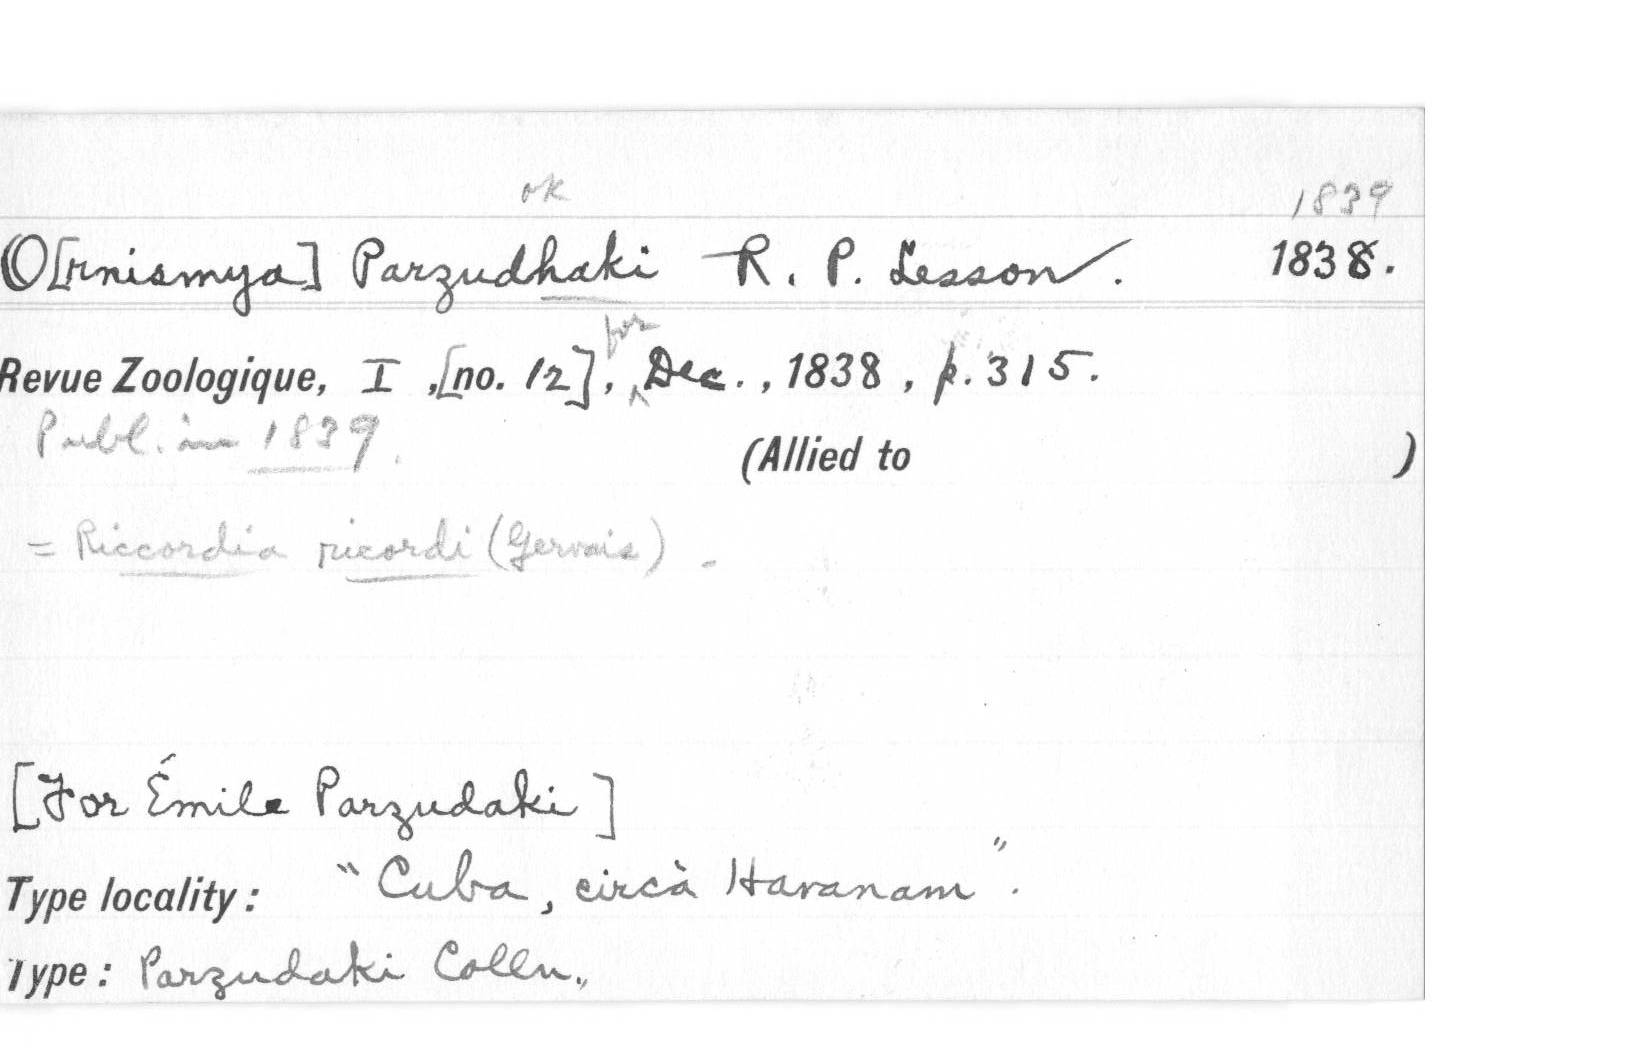 ok 1839
O[rnismya] Parzudhaki R. P. Lesson. 1838.
Revue Zoologique, I, [no. 12], for Dec., 1838, p. 315.
Publ. in 1839.
(Allied to )
= Riccordia ricordi (Gervais).
[For Émile Parzudaki]
Type locality: "Cuba, circà Havanam".
Type: Parzudaki Colln.